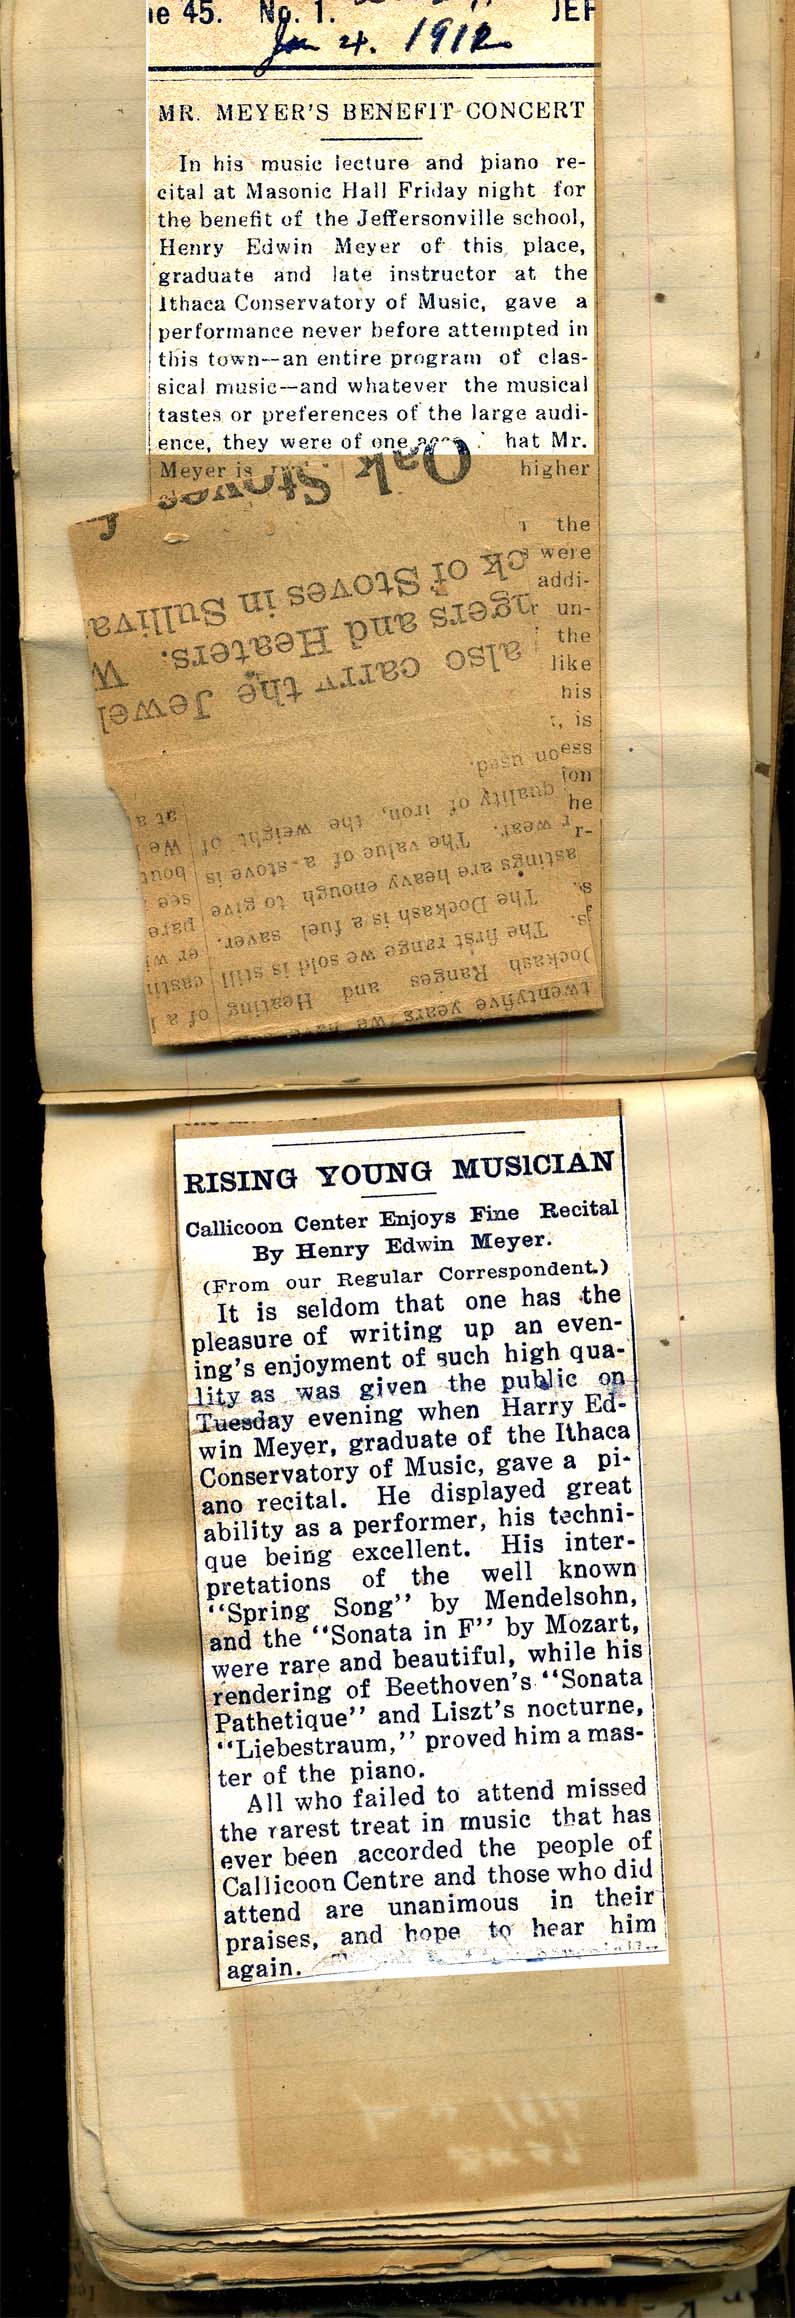 45. No. 1. JEF
Jan 4. 1912
MR. MEYER'S BENEFIT CONCERT
In his music lecture and piano re-
cital at Masonic Hall Friday night for
the benefit of the Jeffersonville school,
Henry Edwin Meyer of this place,
graduate and late instructor at the
Ithaca Conservatory of Music, gave a
performance never before attempted in
this town--an entire program of clas-
sical music--and whatever the musical
tastes or preferences of the large audi-
ence, they were of one hat Mr.
Meyer is higher
the
were
addi-
un-
the
like
his
is
ess
ion
he
r-
Oak Stoves
ck of Stoves in Sulliva
ngers and Heaters. W
also carry the Jewel
on used.
quality of iron, the weight of
r wear. The value of a stove is
astings are heavy enough to give
s. The Dockash is a fuel saver.
s. The first range we sold is still
Dockash Ranges and Heating
twentyfive years we have
at a
We
bout
see
pare
er wi
castin
of a
RISING YOUNG MUSICIAN
Callicoon Center Enjoys Fine Recital
By Henry Edwin Meyer.
(From our Regular Correspondent.)
It is seldom that one has the
pleasure of writing up an even-
ing's enjoyment of such high qua-
lity as was given the public on
Tuesday evening when Harry Ed-
win Meyer, graduate of the Ithaca
Conservatory of Music, gave a pi-
ano recital. He displayed great
ability as a performer, his techni-
que being excellent. His inter-
pretations of the well known
"Spring Song" by Mendelsohn,
and the "Sonata in F" by Mozart,
were rare and beautiful, while his
rendering of Beethoven's "Sonata
Pathetique" and Liszt's nocturne,
"Liebestraum," proved him a mas-
ter of the piano.
All who failed to attend missed
the rarest treat in music that has
ever been accorded the people of
Callicoon Centre and those who did
attend are unanimous in their
praises, and hope to hear him
again.